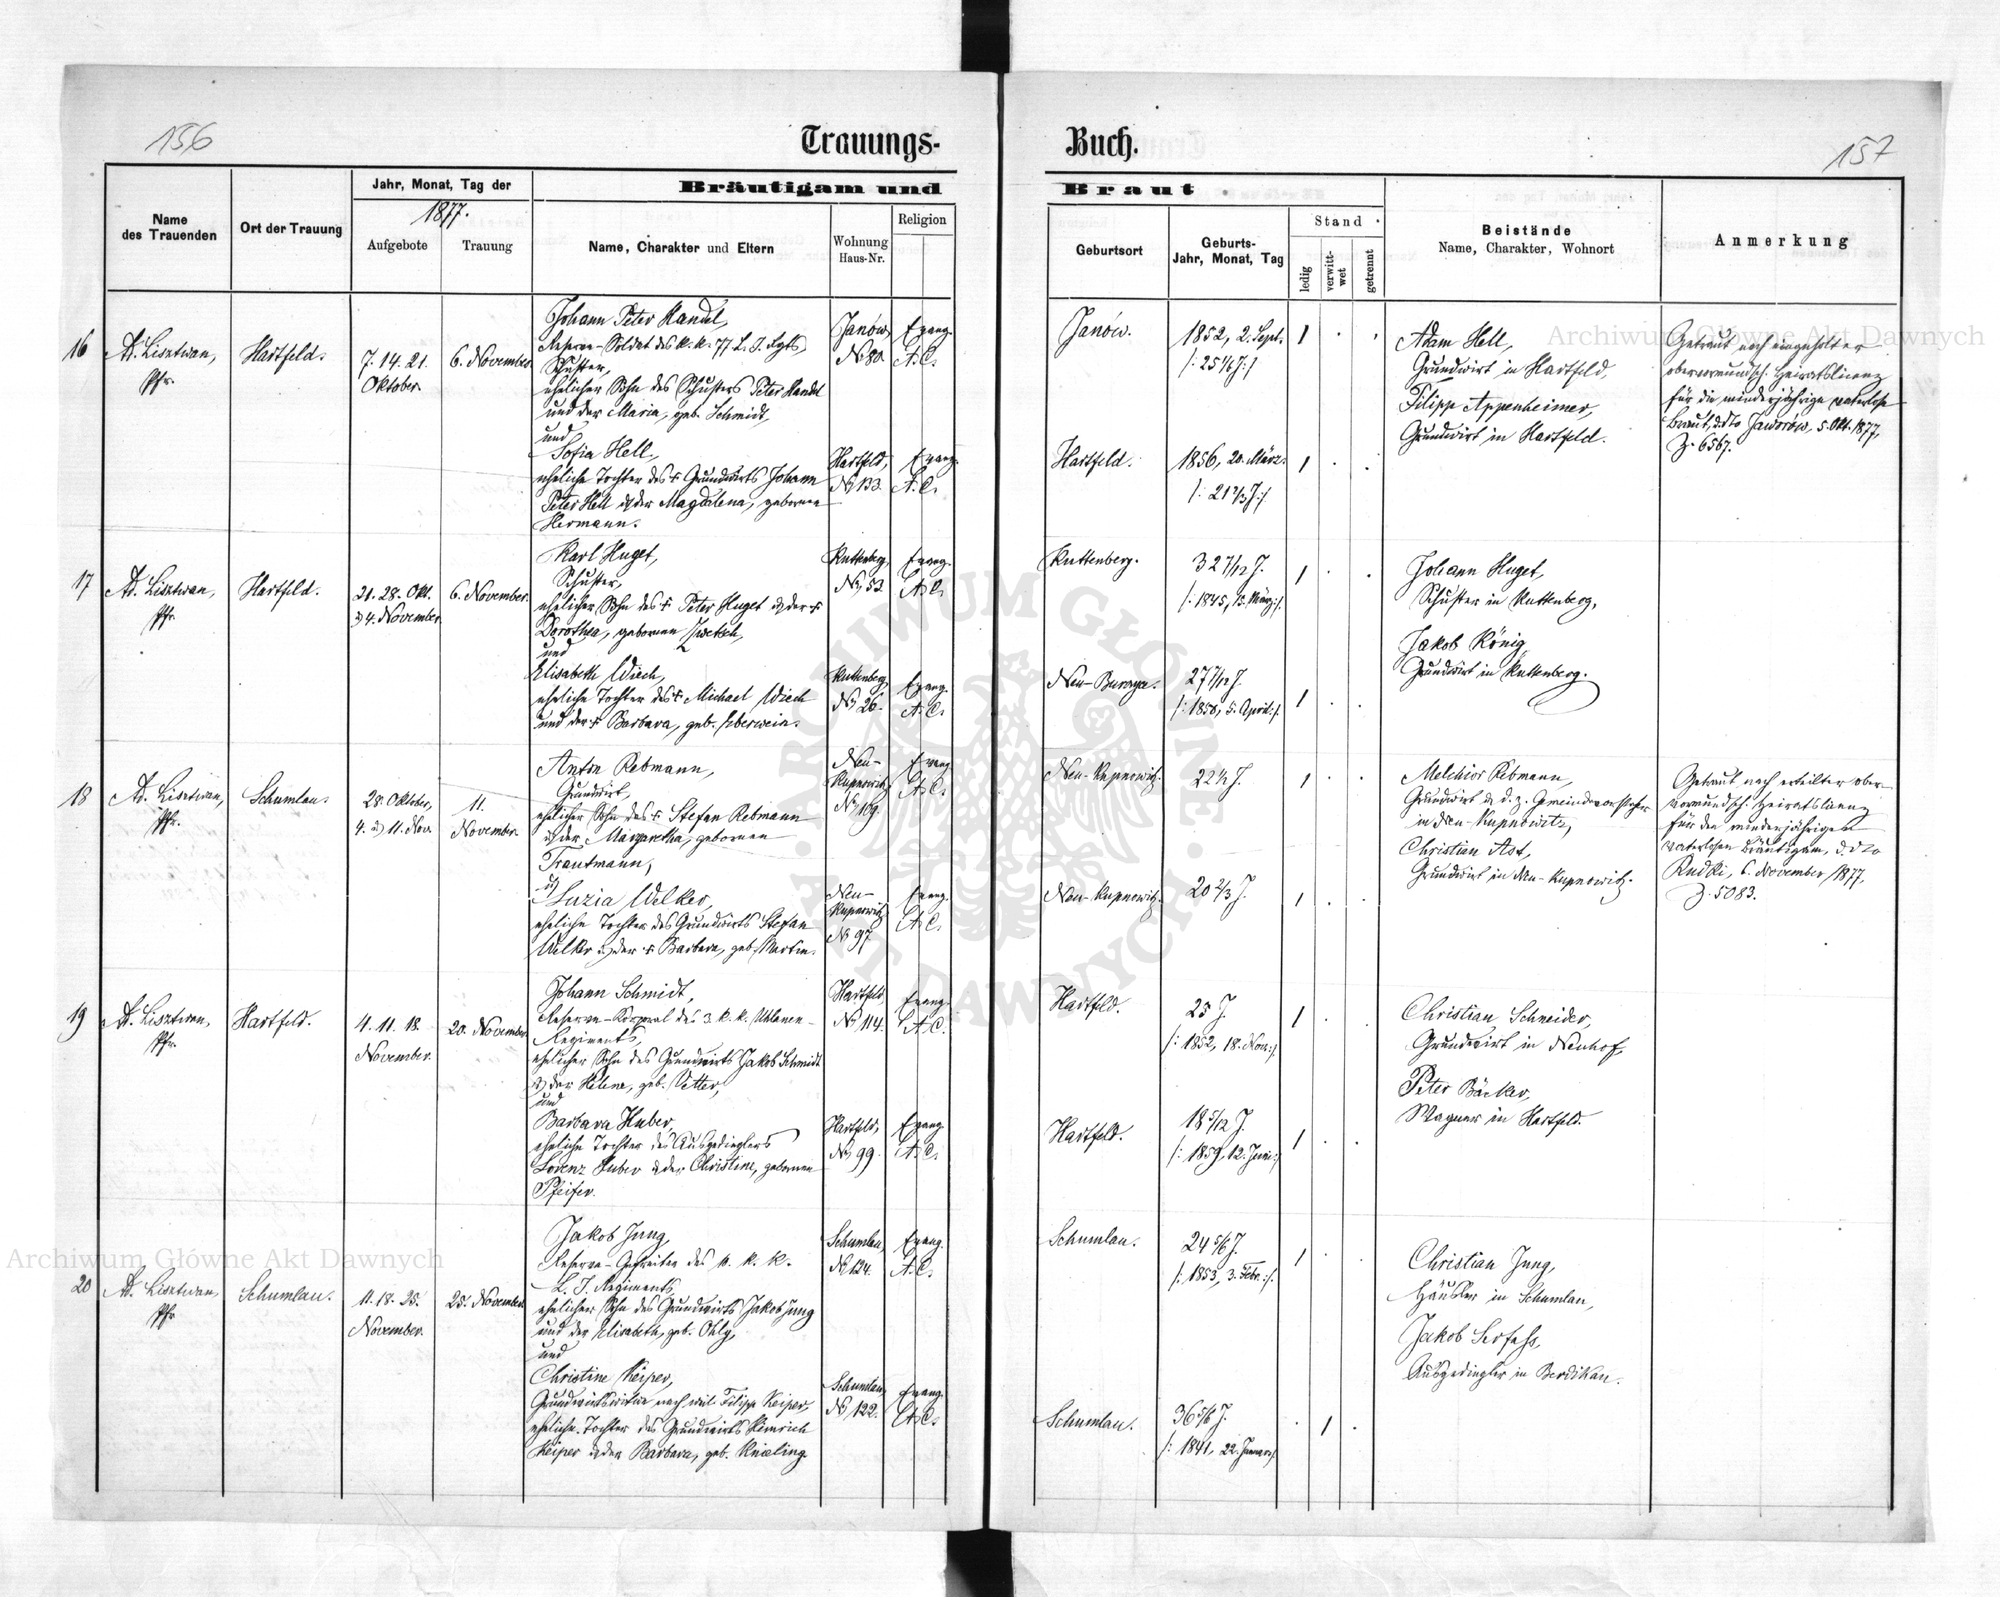 156
157
Trauungs-
Buch.
Bräutigam und
Braut
Name
des Trauenden
Ort der Trauung
Jahr, Monat, Tag der
1877.
Aufgebote
Trauung
Name, Charakter und Eltern
Wohnung
Haus-Nr.
Religion
Geburtsort
Geburts-
Jahr, Monat, Tag
Stand
ledig
verwitt-
wet
getrennt
Beistände
Name, Charakter, Wohnort
Anmerkung
16
Ad. Lisztwan,
Pfr.
Hartfeld.
7. 14. 21.
Oktober.
6. November.
Johann Peter Handel,
Reserve-Soldat des k. k. 77 L. I. Rgts,
Schuster,
ehelicher Sohn des Schusters Peter Handel
und der Maria, geb. Schmidt,
und
Sofia Hell,
eheliche Tochter des † Grundwirts Johann
Peter Hell & der Magdalena, gebornen
Hermann.
Janów,
No 80.
Evang.
A. C.
Hartfeld,
No 133.
Evang.
A. C.
Janów.
1852, 2. Sept.
/: 25 1/6 J :/
Hartfeld.
1856, 20. März.
/: 21 2/3 J :/
Adam Hell,
Grundwirt in Hartfeld,
Filipp Appenheimer,
Grundwirt in Hartfeld.
Getraut nach eingeholter
obervormundsch. Heiratslicenz
für die minderjährige vaterlose
Braut, ddto Jaworów, 5. Okt. 1877,
Z. 6567.
17
Ad. Lisztwan,
Pfr.
Hartfeld.
21. 28. Okt.
& 4. November.
6. November.
Karl Huget,
Schuster,
ehelicher Sohn des † Peter Huget & der †
Dorothea, gebornen Zwetsch,
und
Elisabeth Wiech,
eheliche Tochter des † Michael Wiech
und der † Barbara, geb. Eberwein.
Kuttenberg,
No 53.
Evang.
A. C.
Kuttenberg,
No 26.
Evang.
A. C.
Kuttenberg.
32 7/12 J.
/: 1845, 15. März :/.
Neu-Burczyce.
27 7/12 J.
/: 1850, 5. April :/.
Johann Huget,
Schuster in Kuttenberg,
Jakob König,
Grundwirt in Kuttenberg.
18
Ad. Lisztwan,
Pfr.
Schumlau.
28. Oktober,
4. & 11. Nov.
11.
November.
Anton Rebmann,
Grundwirt,
ehelicher Sohn des † Stefan Rebmann
& der Margaretha, gebornen
Trautmann,
&
Luzia Welker,
eheliche Tochter des Grundwirts Stefan
Welker & der † Barbara, geb. Martin.
Neu-
Kupnowitz
No 109.
Evang.
A. C.
Neu-
Kupnowitz
No 97.
Evang.
A. C.
Neu-Kupnowitz.
22 1/2 J.
Neu-Kupnowitz.
20 2/3 J.
Melchior Rebmann,
Grundwirt & d. z. Gemeindevorsteher
in Neu-Kupnowitz,
Christian Ast,
Grundwirt in Neu-Kupnowitz.
Getraut nach erteilter ober-
vormundsch. Heiratslicenz
für den minderjährigen
vaterlosen Bräutigam, ddto
Rudki, 6. November 1877,
Z. 5083.
19
Ad. Lisztwan,
Pfr.
Hartfeld.
4. 11. 18.
November.
20. November.
Johann Schmidt,
Reserve-Korporal des 3 k. k. Uhlanen-
Regiments,
ehelicher Sohn des Grundwirts Jakob Schmidt
& der Helene, geb. Vetter,
und
Barbara Huber,
eheliche Tochter des Ausgedinglers
Lorenz Huber & der Christine, gebornen
Pfeifer.
Hartfeld,
No 114.
Evang.
A. C.
Hartfeld,
No 99.
Evang.
A. C.
Hartfeld.
25 J.
/: 1852, 18. Nov. :/.
Hartfeld.
18 5/12 J.
/: 1859, 12. Juni :/
Christian Schneider,
Grundwirt in Neuhof,
Peter Bäcker,
Wagner in Hartfeld.
20
Ad. Lisztwan,
Pfr.
Schumlau.
11. 18. 25.
November.
25. November.
Jakob Jung,
Reserve-Gefreiter des k. k.
L. I. Regiments,
ehelicher Sohn des Grundwirts Jakob Jung
und der Elisabeth, geb. Ohly,
und
Christine Keiper,
Grundwirtswitwe nach weil. Filipp Keiper,
eheliche Tochter des Grundwirts Heinrich
Keiper & der Barbara, geb. Knieling.
Schumlau,
No 124.
Evang.
A. C.
Schumlau,
No 122.
Evang.
A. C.
Schumlau.
24 5/6 J.
/: 1853, 3. Febr. :/.
Schumlau.
36 5/6 J.
/: 1841, 22. Januar :/
Christian Jung,
Häusler in Schumlau,
Jakob Serfass,
Ausgedingler in Berdikau.
Archiwum Główne Akt Dawnych
Archiwum Główne Akt Dawnych
ARCHIWUM GŁÓWNE AKT DAWNYCH